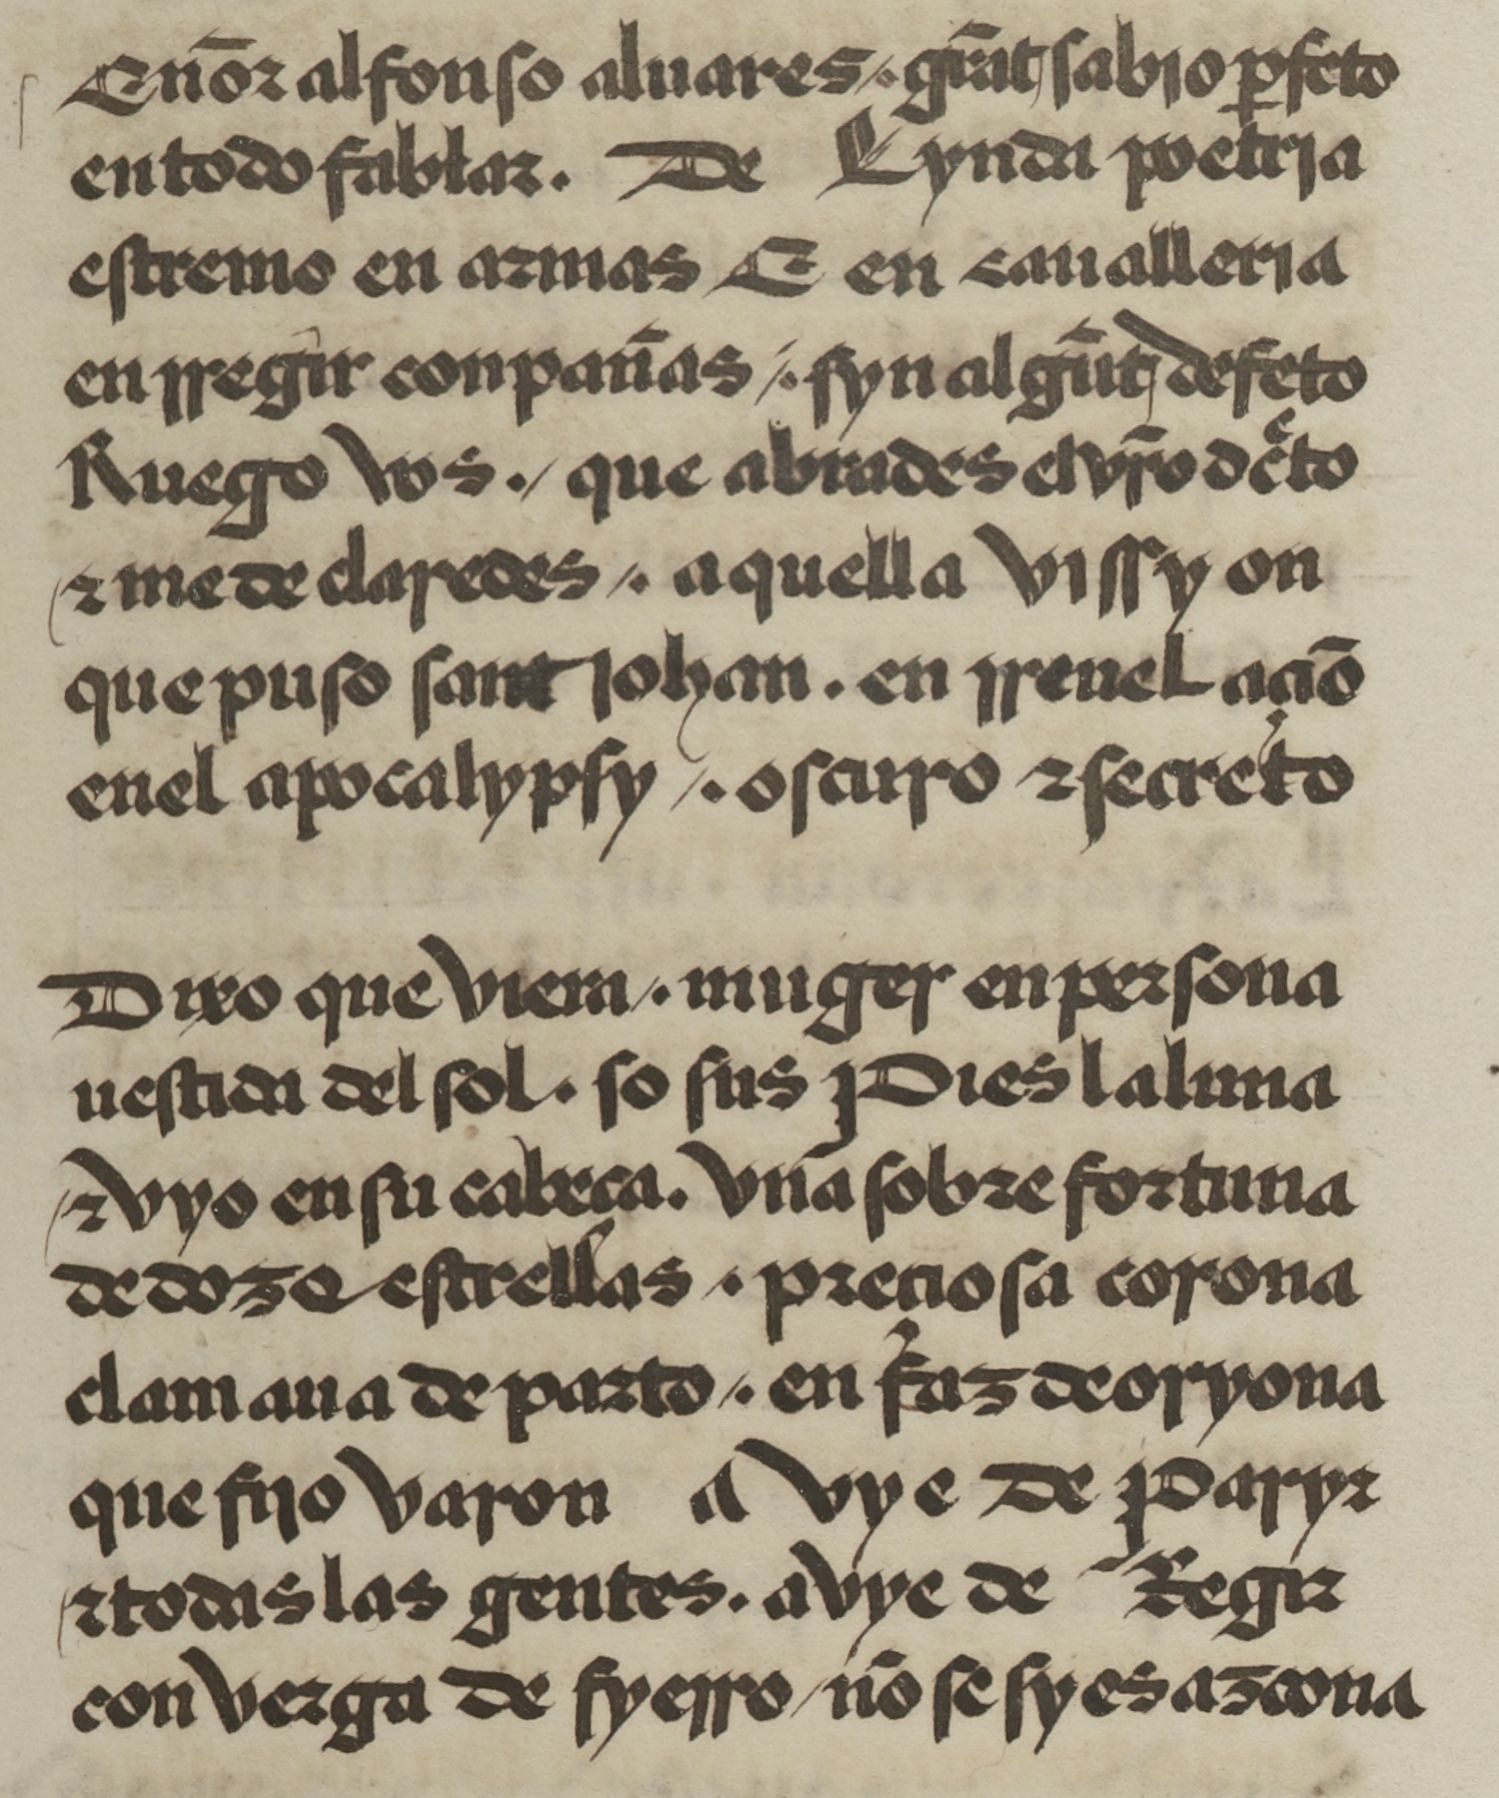 Eñor alfonso aluares ⁄. grãt sabio ꝑfeto
en todo fablar . De Lynda poetria
estremo en armas E en caualleria
en rregir conpañas ⁄. syn algũt defeto
Ruego vos . ⁄ que abrades el vr̃o dc̃to
⁊ me declaredes ⁄. aquella vissyon
que puso sant Johan . en rreuelaciõ
enel apocalypsy ⁄. oscuro ⁊ secreto
Dixo que viera ⁄. muger en persona
uestida del sol . so sus Pies la luna
⁊ vyo en su cabeca . vna sobre fortuna
de doze estrellas ⁄. preciosa corona
clamaua de parto ⁄. en faz de oryona
que fijo varon avye de Paryr
⁊ todas las gentes . avye de Regir
con verga de fyerro ⁄ nõ se sy es azcona